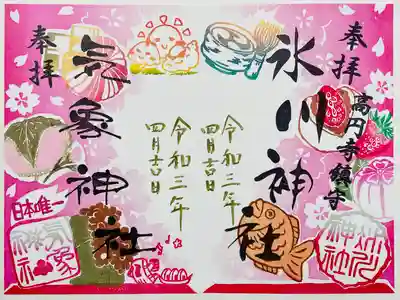 奉拝
高円寺鎮守
氷川神社
令和三年
四月吉日
奉拝
気象神社
令和三年
四月吉日
日本唯一
気象
神社
氷川
神社